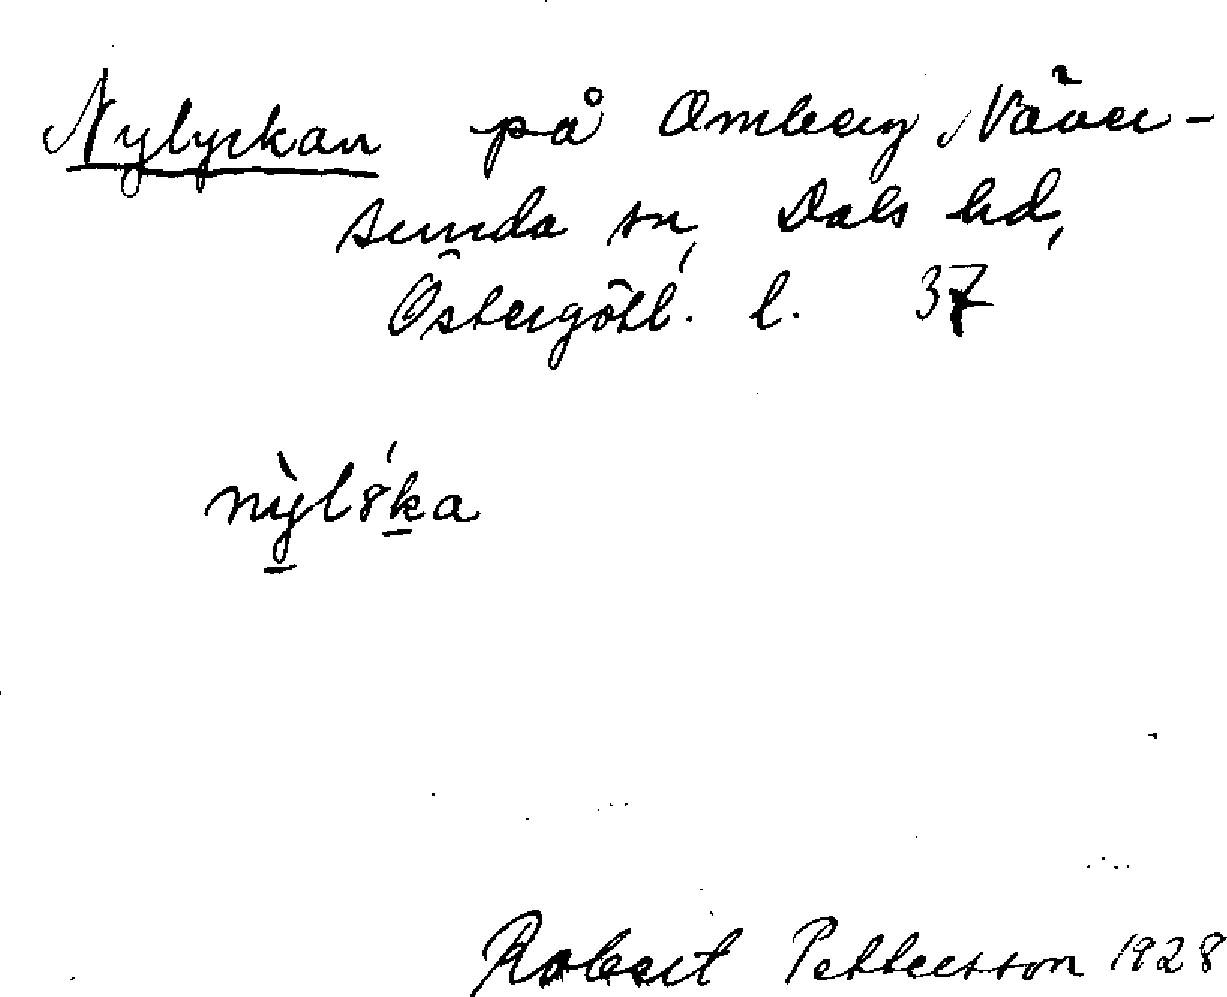 Nylyckan på Omberg, Väver-
sunda sn, Dals hd,
Östergötl. l. 37
nỳl8́ka
Robert Pettersson 1928